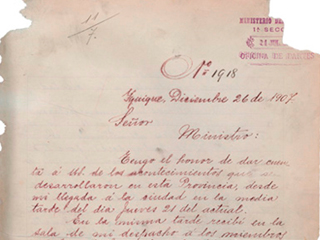 11
/7.
MINISTERIO DE
1ª SECC
OFICINA DE PARTES
Nº 1918
Iquique, Diciembre 26 de 1907.
Señor
Ministro:
Tengo el honor de dar cuen
ta á US. de los acontecimientos que se
desarrollaron en esta Provincia, desde
mi llegada á la ciudad en la media
tarde del dia jueves 21 del actual.
En la misma tarde recibí en la
sala de mi despacho á los miembros